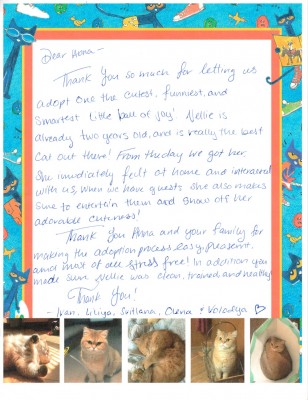 Dear Anna -
Thank you so much for letting us
adopt one the cutest, funniest, and
smartest little ball of joy! Nellie is
already two years old, and is really the best
cat out there! From the day we got her
she immediately felt at home and interacted
with us, when we have guests she also makes
sure to entertain them and show off her
adorable cuteness!
Thank you Anna and your family for
making the adoption process easy, pleasent,
and most of all stress free! In addition you
made sure Nellie was clean, trained and healthy!
Thank You!
- Ivan, Liliya, Svitlana, Olena & Volodya